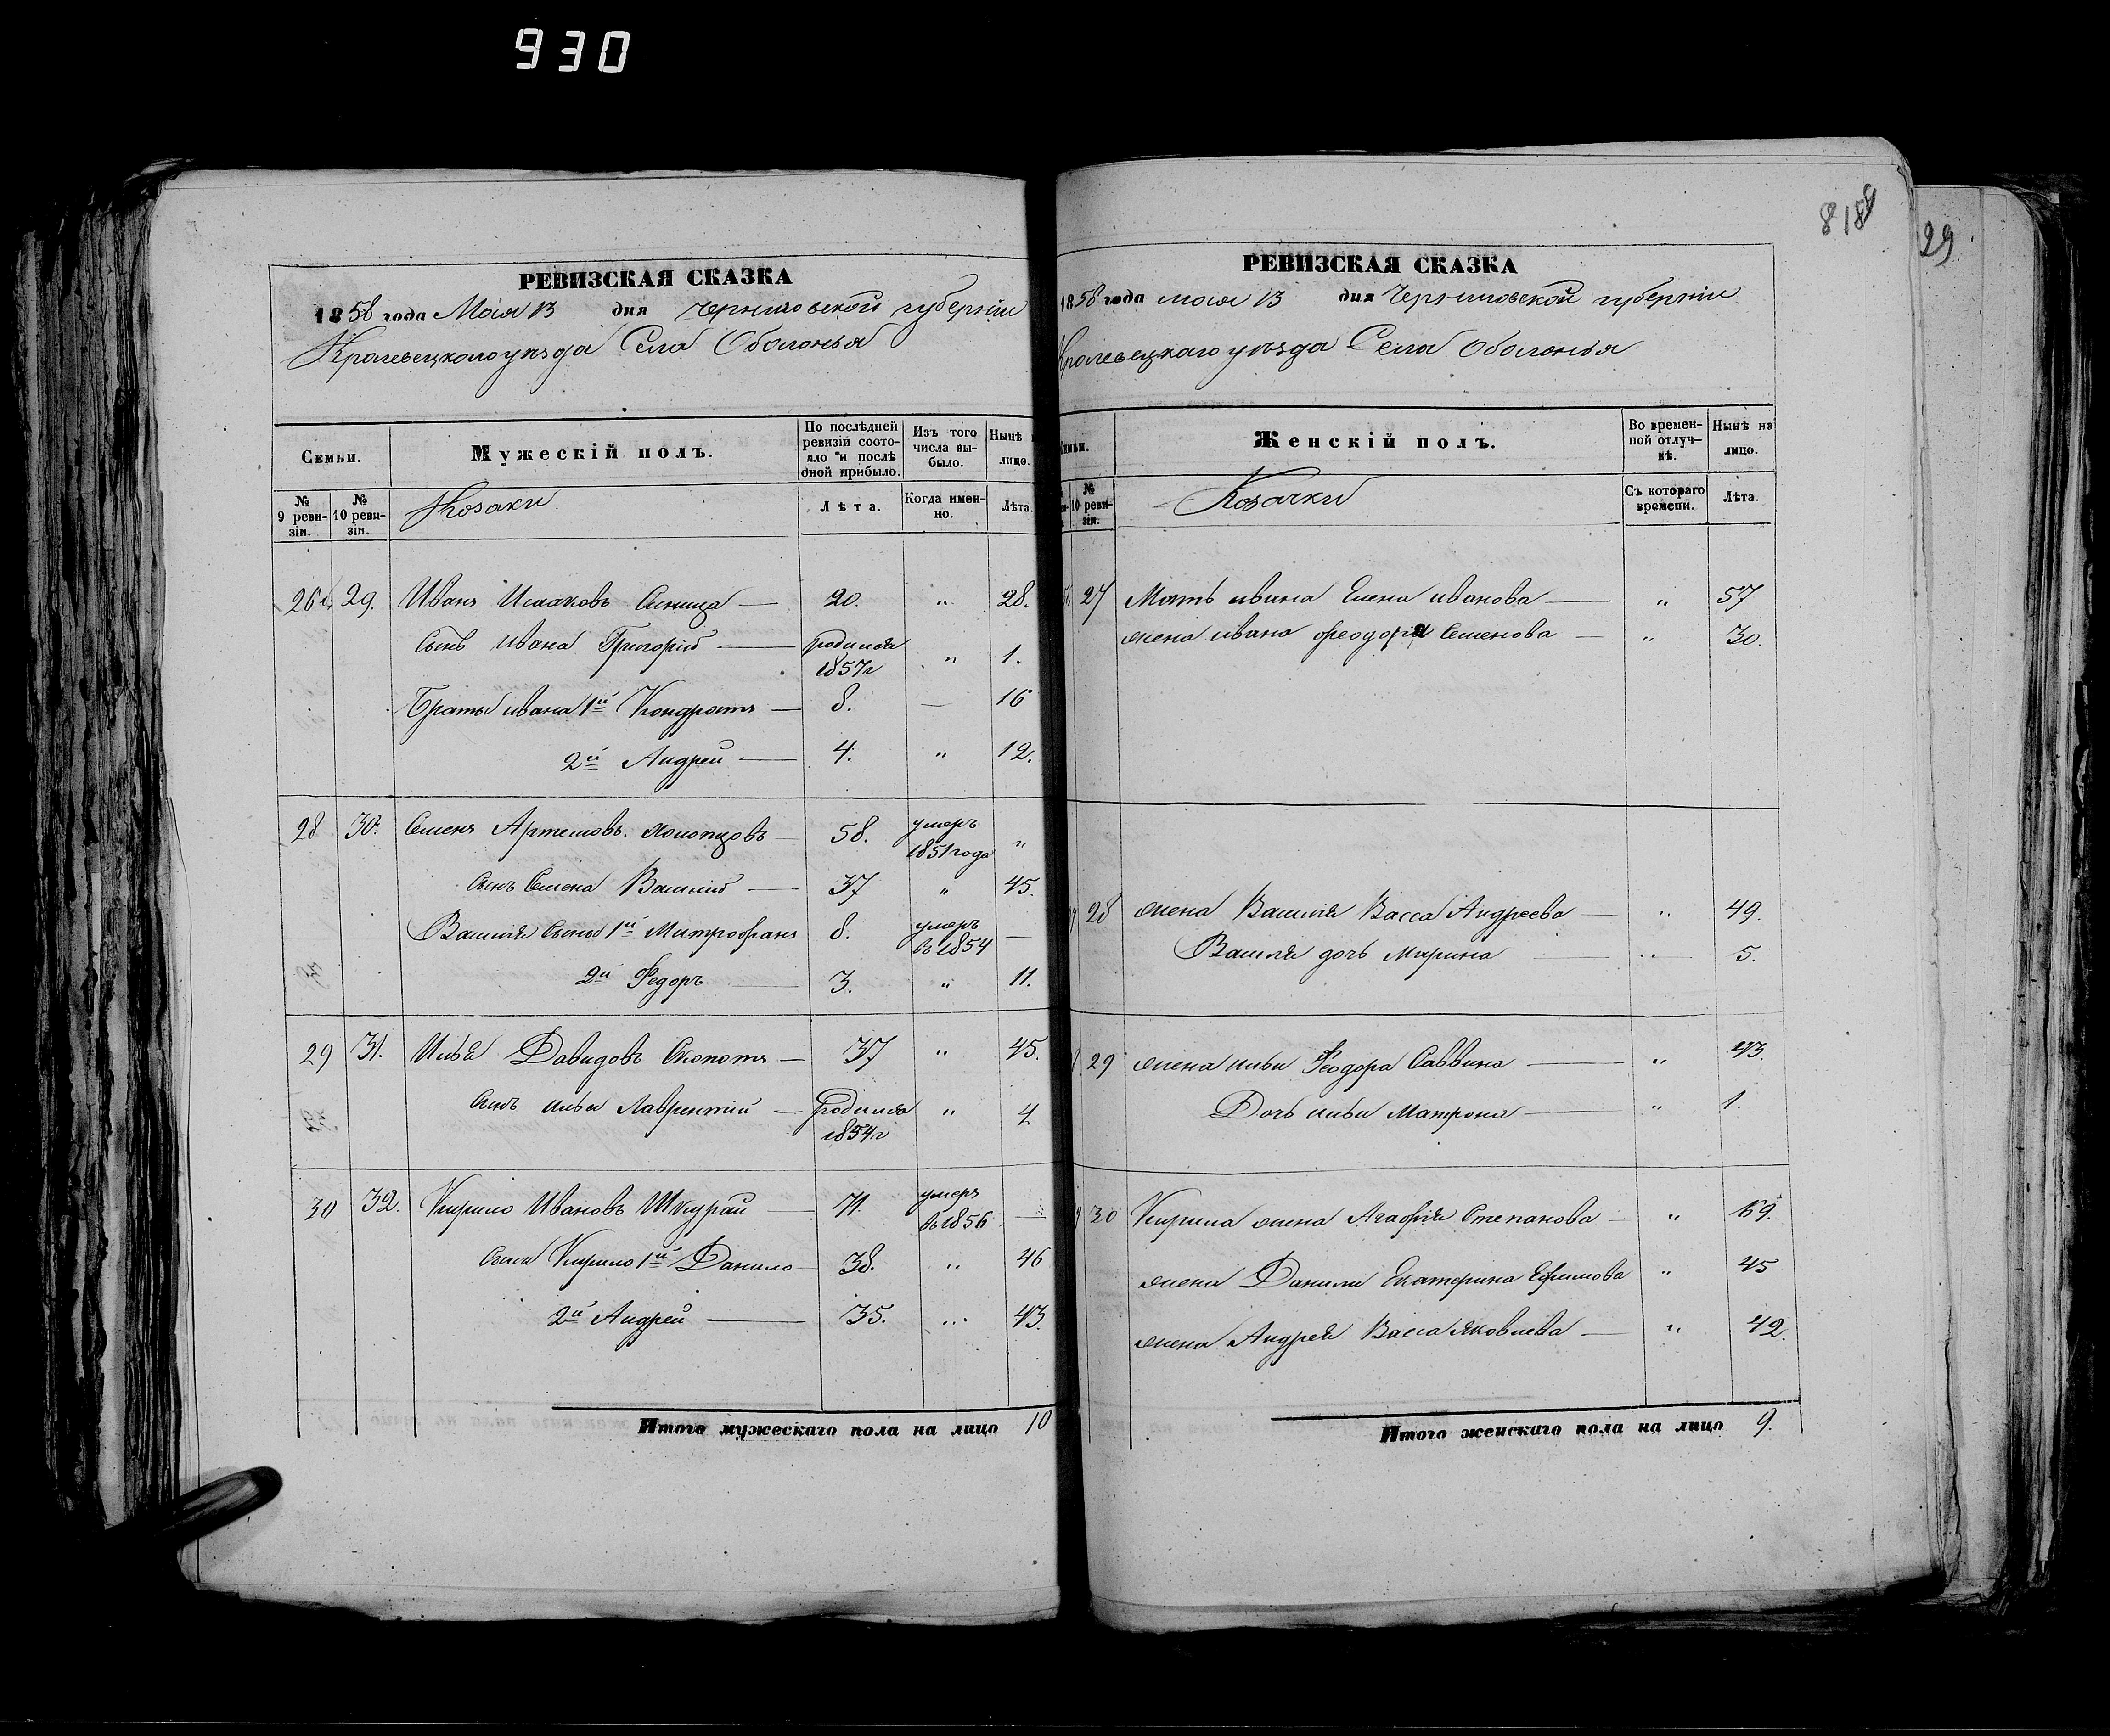 930
818
29
РЕВИЗСКАЯ СКАЗКА
1858 года Мая 13 дня Черниговской губернiи
Кролевецкаго уѣзда Села Оболонья
Семьи.
Мужескій полъ.
По послѣдней ревизіи состо-
яло и послѣ
оной прибыло.
Изъ того
числа вы-
было.
Нынѣ
лицо.
№
9 реви-
зіи.
№
10 реви-
зіи.
Козаки
Лѣта.
Когда имен-
но.
Лѣта.
29. Иванъ Исааковъ — 20. „ 28.
Сынъ Ивана Григорій — родился
1857г „ 1.
Браты ивана 1й Кондратъ — 8. — 16
2й Андрей — 4. „ 12.
28 30. Семенъ Артемовъ. Холопцовъ — 58. умеръ
1851 года „
Сынъ Семена Василій — 37 „ 45.
Василія Сыны 1й Митрофанъ 8. умеръ
въ 1854 —
2й Федоръ — 3. „ 11.
29 31. Илья Давидовъ — 37 „ 45.
Сынъ ильи Лаврентій — родился
1854г „ 4
30 32. Кирило Ивановъ Шкурай — 71. умеръ
въ 1856 —
Сыны Кирило 1й Данило — 38. „ 46
2й Андрей — 35. „ 43.
Итого мужескаго пола на лицо 10
РЕВИЗСКАЯ СКАЗКА
1858 года мая 13 дня Черниговской губернiи
Кролевецкаго уѣзда Села Оболонья
Женскій полъ.
Во времен-
ной отлуч-
кѣ.
Нынѣ на
лицо.
№
10 реви-
зіи.
Козачки
Съ котораго
времени.
Лѣта.
27 Мать ивана Елена иванова — „ 57
жена ивана феодора Семенова — „ 30.
28 жена Василія Васса Андреева — „ 49.
Василія дочь Марина — „ 5.
29 жена ильи Феодора Саввина — „ 43.
Дочь ильи Матрона — „ 1.
30 Кирила жена Агафія Степанова — „ 69.
жена Данила Екатерина Ефимова „ 45
жена Андрея Васса Яковлева — „ 42.
Итого женскаго пола на лицо 9.